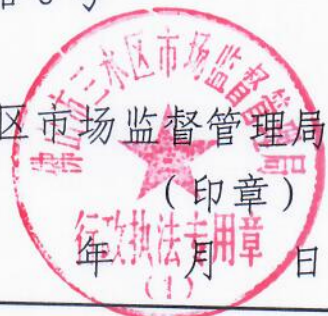 区市场监督管理局
(印章)
年 月 日
佛山市三水区市场监督管理局
行政执法专用章
(1)